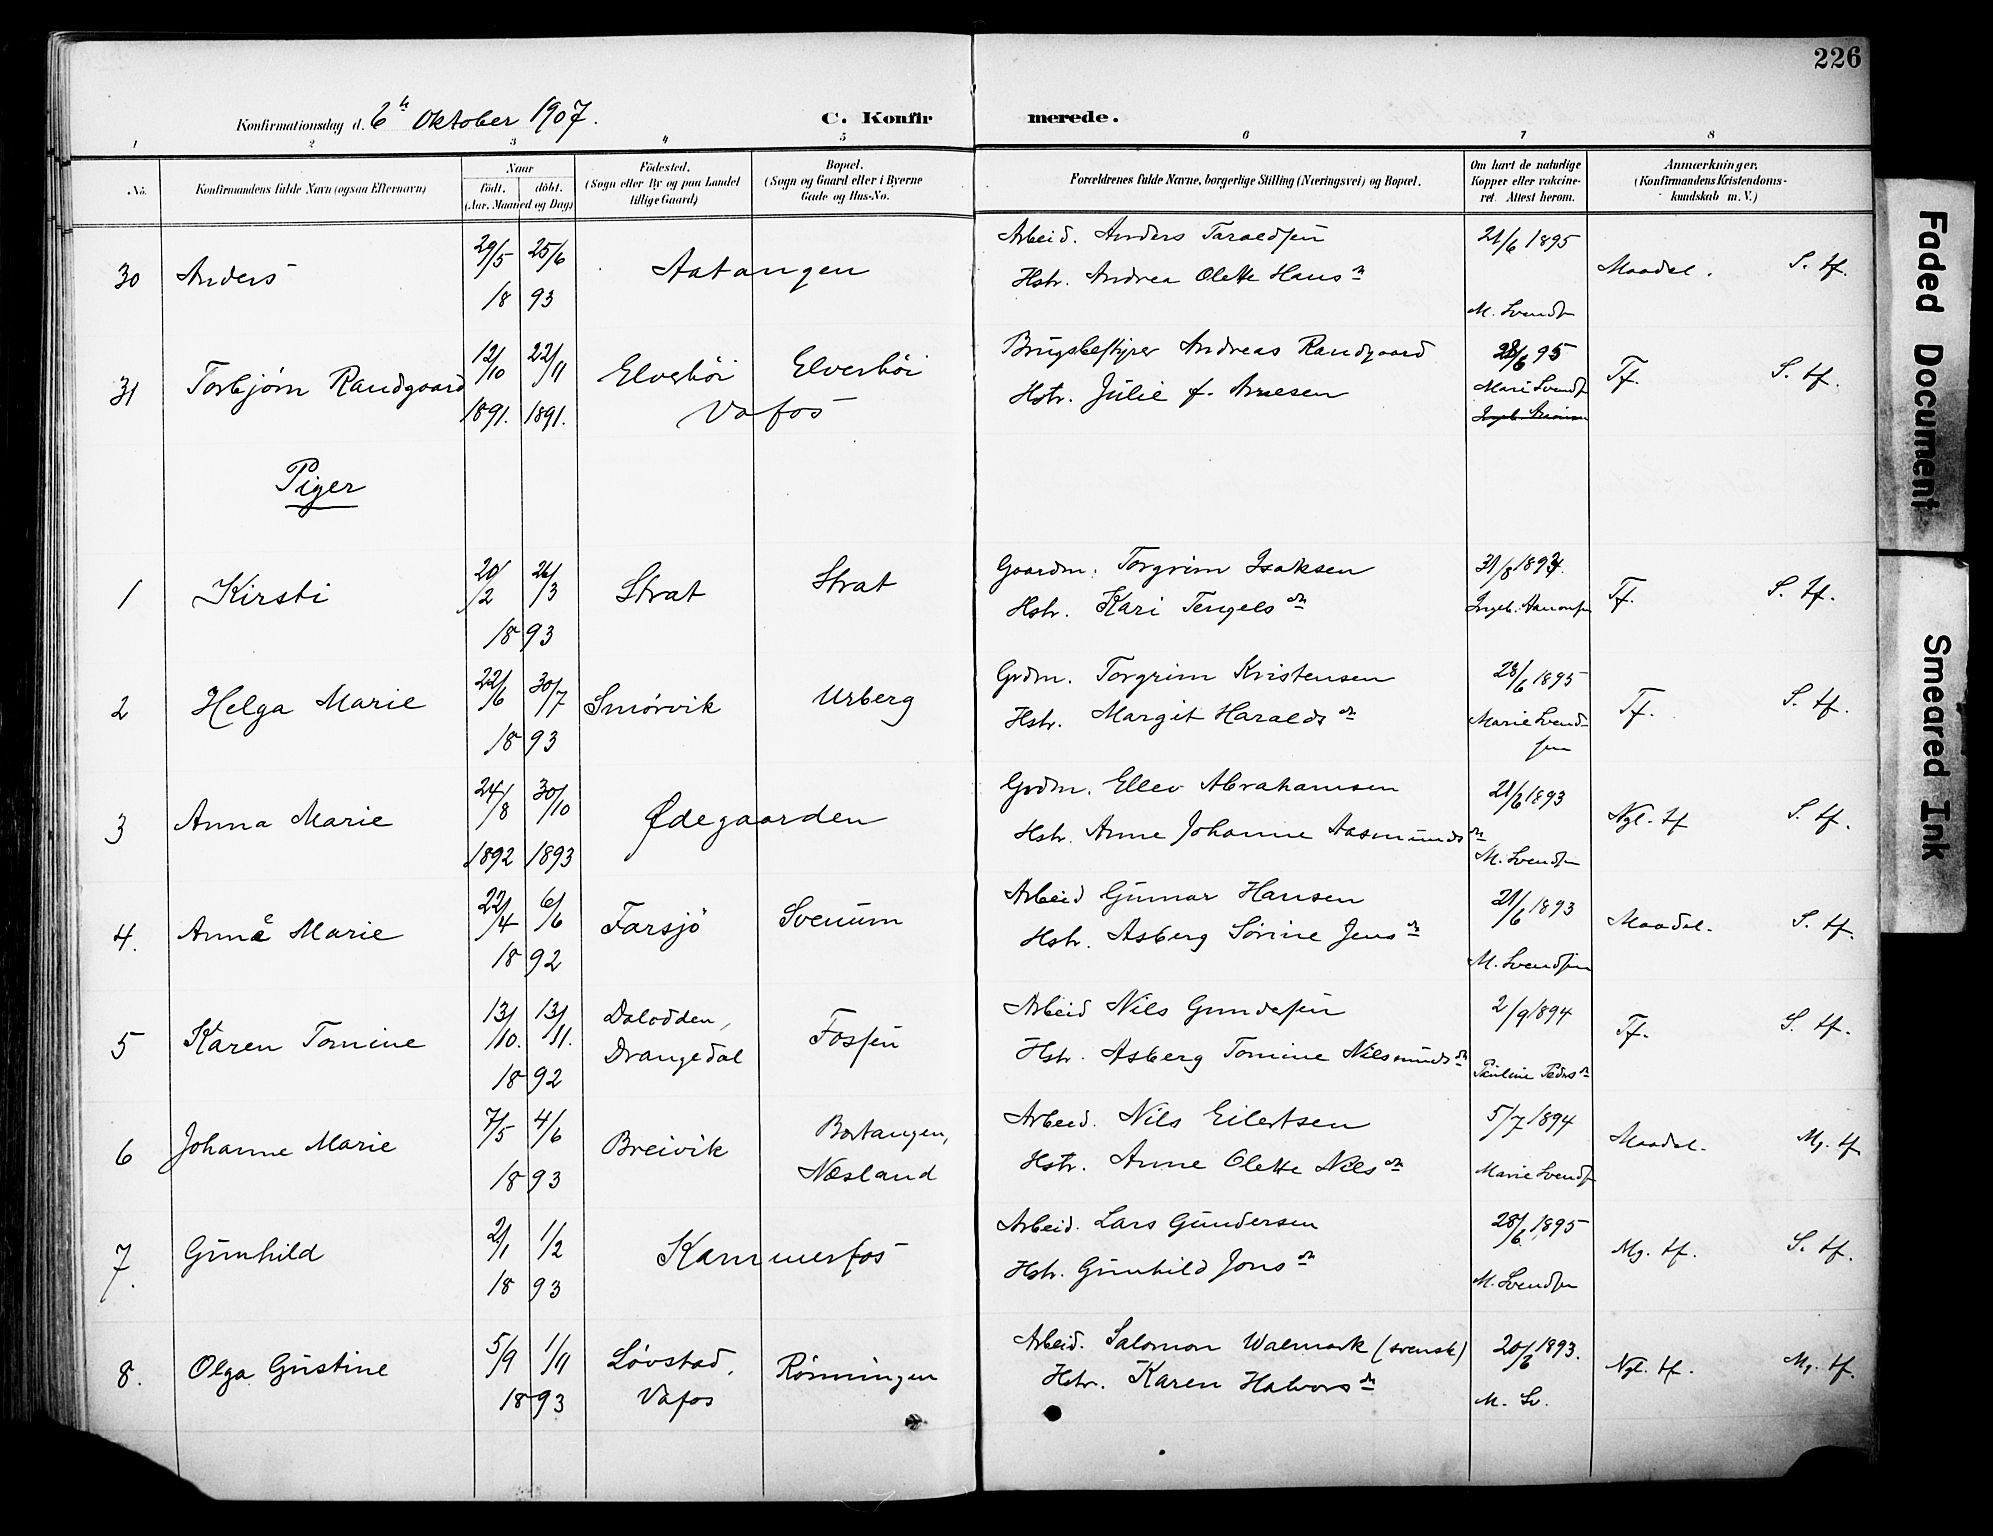 226
Konfirmationsdag d. 6te Oktober 1907.
C. Konfirmerede.
1 2 3 4 5 6 7 8
No.
Konfirmandens fulde Navn (ogsaa Efternavn)
Naar
födt. döbt.
(Aar, Maaned og Dag)
Födested.
(Sogn eller By og paa Landet
tillige Gaard)
Bopæl.
(Sogn og Gaard eller i Byerne
Gade og Hus-No.
Forældrenes fulde Navne, borgerlige Stilling (Næringsvei) og Bopæl.
Om havt de naturlige
Kopper eller vakcine-
ret. Attest herom.
Anmærkninger.
(Konfirmandens Kristendoms-
kundskab m. V.)
30 Anders 29/5 25/6 1893 Aatangen
Arbeid. Anders Taraldsen
Hstr. Andrea Olette Hans dr
21/6 1895
M. Svends
Maadel. S. tf.
31 Torbjørn Randgaard 12/10 1891. 22/11 1891. Elverhöi Elverhöi
Vafos
Brugsbestyrer Andreas Randgaard
Hstr. Julie f. Arnesen
28/6 95
Marie Svends
Tf. S. tf.
Piger
1 Kirsti 20/2 26/3 1893 Strat Strat
Gaardm. Torgrim Isaksen
Hstr. Kari Tengels dr
31/8 1894.
Ingeb. Aanonsen
Tf. S. tf.
2 Helga Marie 22/6 30/7 1893 Smörvik Urberg
Grdm. Torgrim Kristensen
Hstr. Margit Haralds dr
28/6 1895
Marie Svend-
sen
Tf. S. tf.
3 Anna Marie 24/8 1892 30/10 1893 Ødegaarden
Grdm. Ellev Abrahamsen
Hstr. Anne Johanne Aasmunds dr
21/6 1893
M. Svendsen
Ngl. tf S. tf.
4. Anne Marie 22/4 6/6 1892 Farsjö Svenum
Arbeid Gunnar Hansen
Hstr. Asberg Sörine Jens dr
21/6 1893
M. Svendsen
Maadel. S. tf.
5 Karen Tomine 13/10. 13/11. 1892 Dalodden,
Drangedal
Fossen
Arbeid Nils Gundesen
Hstr. Asberg Tomine Nilsmunds dr
2/9 1894
Pauline Peders dr
Tf. S. tf.
6 Johanne Marie 7/5 4/6 1893 Breivik
Bortangen,
Næsland
Arbeid. Nils Eilertsen
Hstr. Anne Olette Nils dr
5/7 1894
Marie Svends
Maadel. Mg. tf
7. Gunhild 2/1 1/2 1893 Kammerfos
Arbeid. Lars Gundersen
Hstr. Gunhild Jons dr
28/6 1895
M. Svendsen
Mg. tf. S. tf.
8. Olga Gustine 5/9 1/11 1893 Lövstad,
Vafos
Rönningen
Arbeid. Salomon Walmark (svensk)
Hstr. Karen Halvors dr
20/6 1893.
M. Sv.
Ngl. tf. Mg. tf.
Faded Document
Smeared Ink